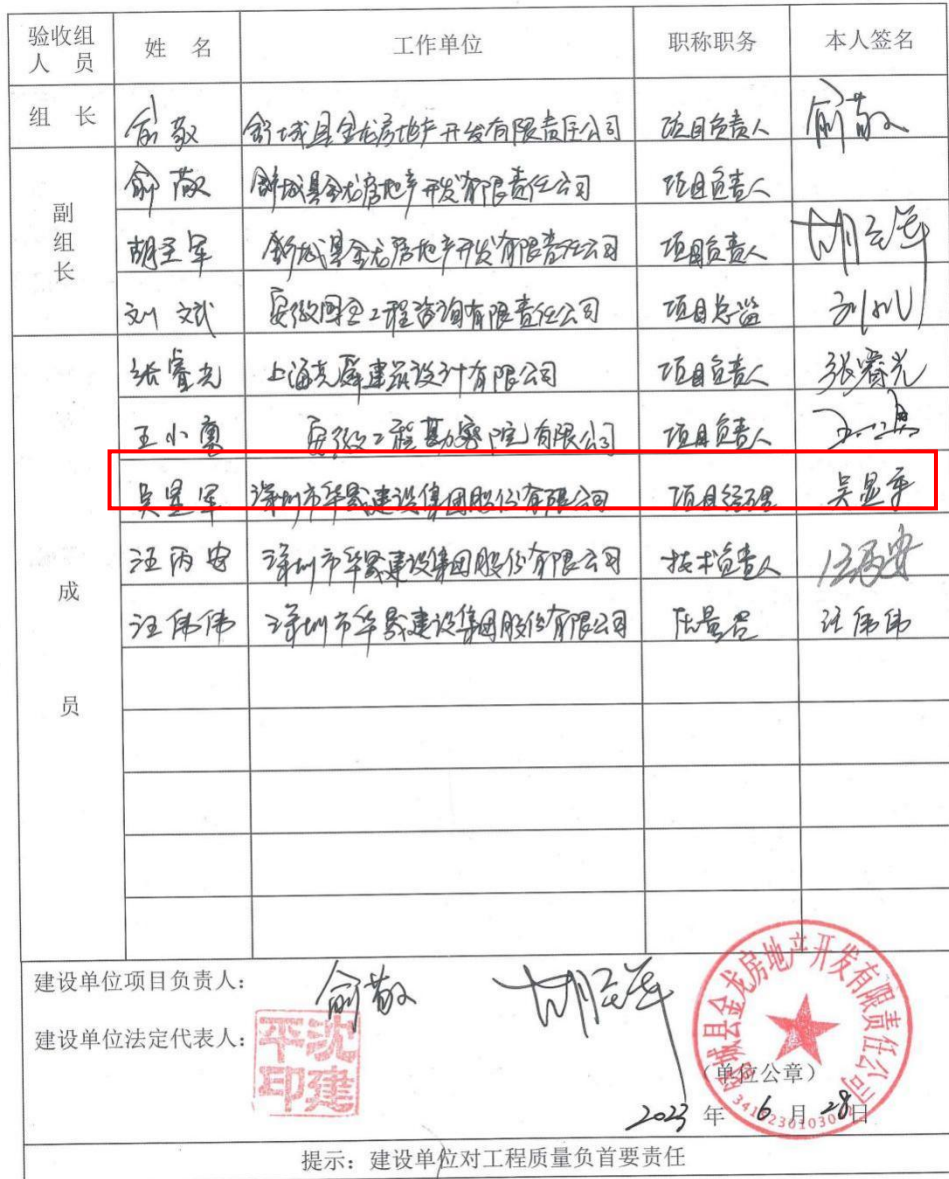 验收组人 员 姓 名 工作单位 职称职务 本人签名
组 长 俞敬 舒城县金龙房地产开发有限责任公司 项目负责人 俞敬
副组长 俞敬 舒城县金龙房地产开发有限责任公司 项目负责人
胡 军 舒城县金龙房地产开发有限责任公司 项目负责人
刘文武 安徽国 工程咨询有限责任公司 项目总监
成 员 张睿光 上海 建筑设计有限公司 项目负责人 张睿光
王小勇 安徽工程勘察院有限公司 项目负责人
吴显军 深圳市华晟建设集团股份有限公司 项目经理 吴显军
汪丙安 深圳市华晟建设集团股份有限公司 技术负责人 汪丙安
汪伟伟 深圳市华晟建设集团股份有限公司 质量员 汪伟伟
建设单位项目负责人: 俞敬
建设单位法定代表人: 沈建平印
舒城县金龙房地产开发有限责任公司
(单位公章)
2023 年 6 月 28日
提示: 建设单位对工程质量负首要责任